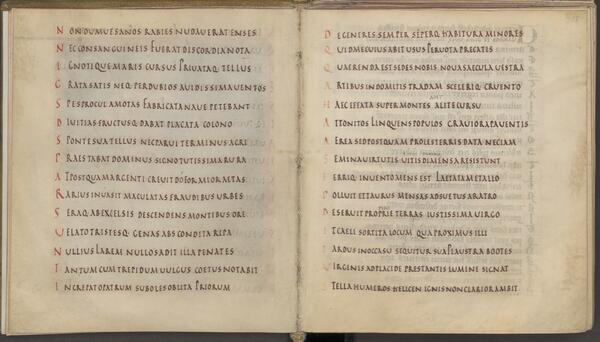 NONDUMUESANOS RABIES NUDAUERATENSES
NECCONSANGUINEIS FUERATDISCORDIANOTA
IGNOTIQUEMARIS CURSUS PRIUATAQ TELLUS
GRATASATIS NEQ PERDUBIOS AUIDISSIMAUENTOS
SPESPROCULAMOTAS FABRICATANAUE PETEBANT
DIUITIAS FRUCTUSQ DABAT PLACATA COLONO
SPONTESUATELLUS NECPARUI TERMINUS AGRI
PRAESTABATDOMINUS SIGNOTUTISSIMARURA
ATPOSTQUAMARGENTI CREUITDEFORMIORAETAS
RARIUSINUASIT MACULATAS FRAUDIBUS URBES
SERAQ ABEXCELSIS DESCENDENS MONTIBUS ORE
UELATOTRISTESQ GENAS ABSCONDITA RIPA
NULLIUSLAREM NULLOSADIT ILLAPENATES
TANTUMCUMTREPIDUM UULGUS COETUSNOTABIT
INCREPATOPATRUM SUBOLESOBLITA PRIORUM
DEGENERES SEMPER SEPERQ HABITURA MINORES
QUIDMECUIUS ABITUSUS PERUOTA PRECATIS
QUAERENDAESTSEDES NOBIS NOUASAECULAUESTRA
ARTIBUSINDOMITIS TRADAM SCELERIQ CRUENTO
HAECEFFATA SUPERMONTES ALITECURSU
ATTONITOSLINQUENSPOPULOS GRAUIORAPAUENTIS
AEREASEDPOSTQUAM PROLESTERRISDATA NECIAM
SEMINAUIRTUTIS UITIISDEMERSARESISTUNT
FERRIQ INUENTOMENS EST LAETATAMETALLO
POLLUITETTAURUS MENSASADSUETUS ARATRO
DESERUITPROPRIETERRAS IUSTISSIMA UIRGO
ETCAELI SORTITALOCUM QUAPROXIMUSILLI
TARDUSINOCCASU SEQUITUR SUAPLAUSTRA BOOTES
UIRGINIS ADPLACIDE PRESTANTIS LUMINE SIGNAT
STELLAHUMEROS HELICEN IGNISNONCLARIORAMBIT